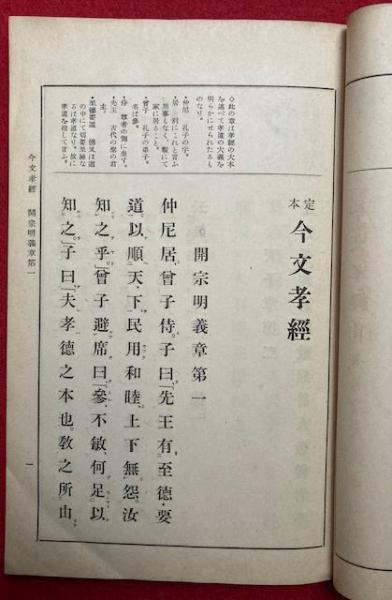 定本 今文孝經
開宗明義章第一
仲尼居、曾子侍。子曰、「先王有至德要
道。以順天下、民用和睦、上下無怨。汝
知之乎。」曾子避席曰、「參不敏、何足以
知之。」子曰、「夫孝德之本也。敎之所由
◇此の章は孝經の大本
を述べて孝道の大義を
明らかにせられたるも
のなり。
・仲尼 孔子の字。
・曾子 孔子の弟子。
今文孝經 開宗明義章第一
一